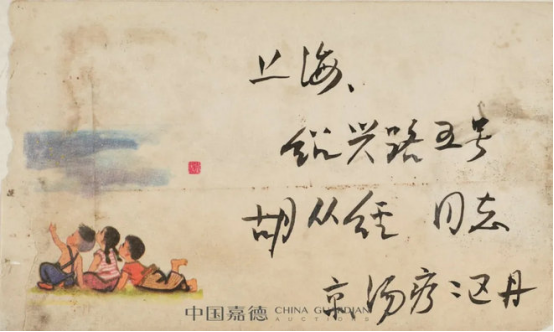 上海、
绍兴路五号
胡从经 同志
京汤
中国嘉德 CHINA GUARDIAN
AUCTIONS